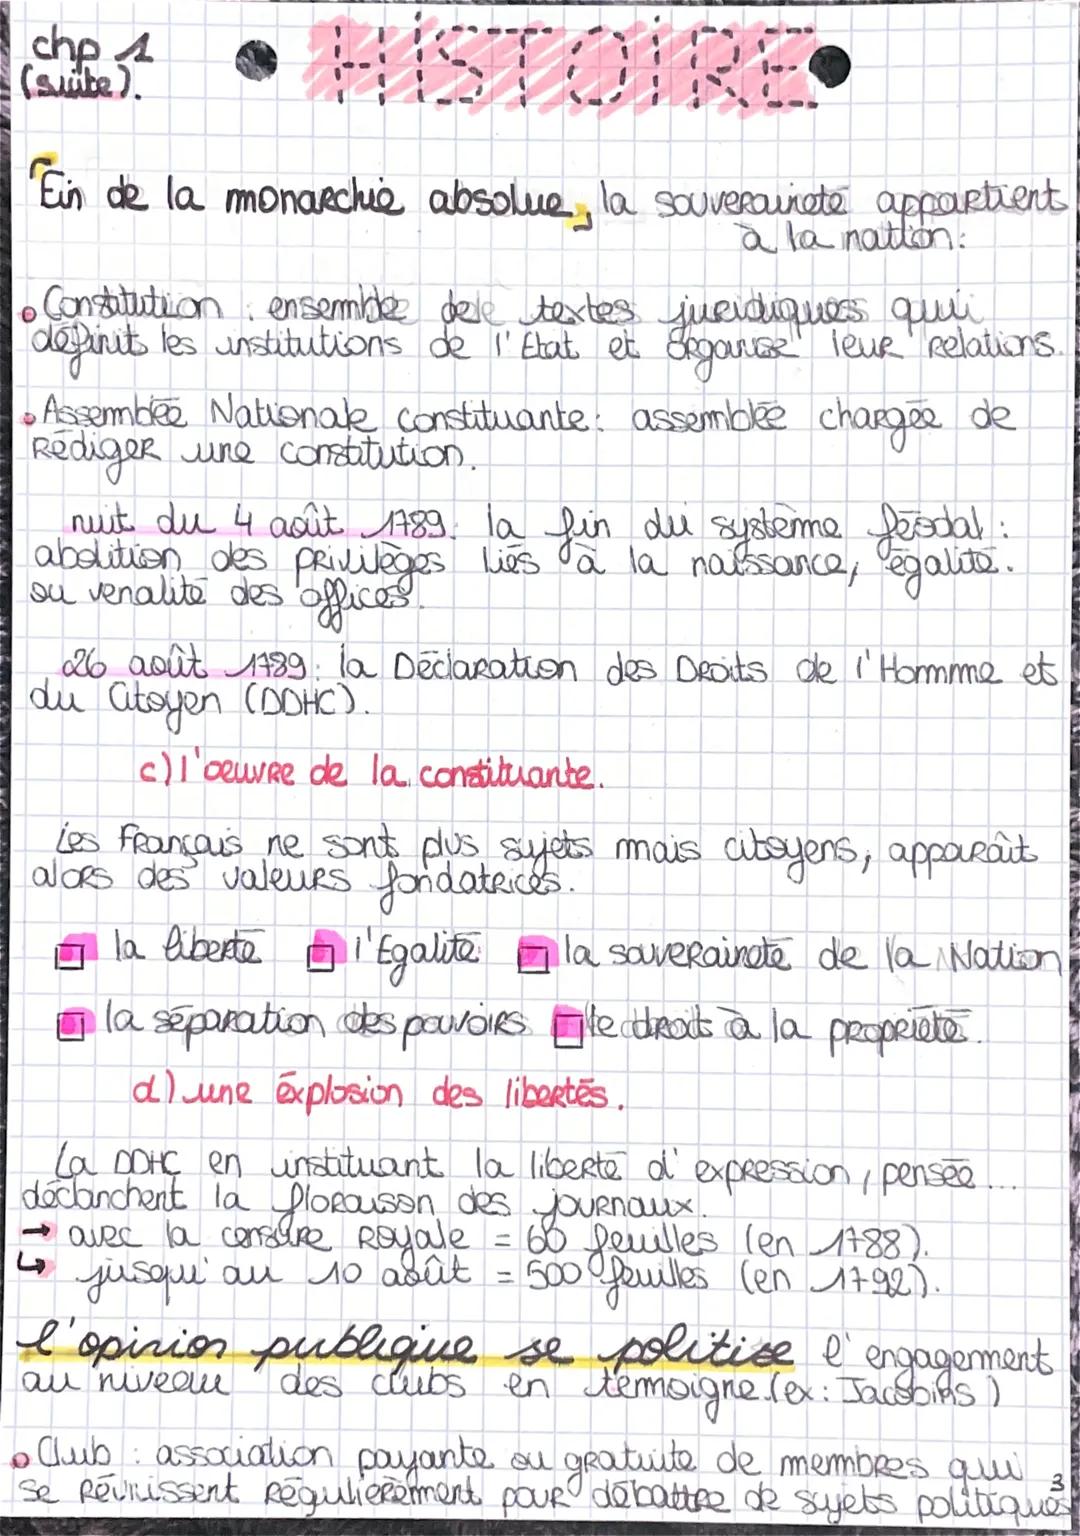 chp 1
(suite).
HISTOIRE
"Fin de la monarchie absolue, la souveraineté appartient
à la nation:
Constitution : ensemble de textes juridiques qui
définit les institutions de l'Etat et organise leur relations.
Assemblée Nationale constituante: assemblée chargée de
Rédiger une constitution.
nuit du 4 août 1789: la fin du système féodal :
abolition des privilèges liés à la naissance, égalité.
ou venalité des offices.
26 août 1789: la Déclaration des Droits de l'Homme et
du Citoyen (DDHC).
c) l'oeuvre de la constituante.
Les Français ne sont plus sujets mais citoyens, apparaît
alors des valeurs fondatrices.
la liberté l'Egalité la souveraineté de la Nation
la séparation des pouvoirs le droit à la propriété.
d) une éxplosion des libertés.
La DDHC en instituant la liberté d'expression, pensée...
déclanchent la floraison des journaux.
→ avec la censure Royale = 60 feuilles (en 1788).
↳ jusqu'au 10 août = 500 feuilles (en 1792).
l'opinion publique se politise l'engagement
au niveau des clubs en témoigne.(ex: Jacobins)
Club : association payante ou gratuite de membres qui
se réunissent Régulièrement pour débattre de sujets politiques
3